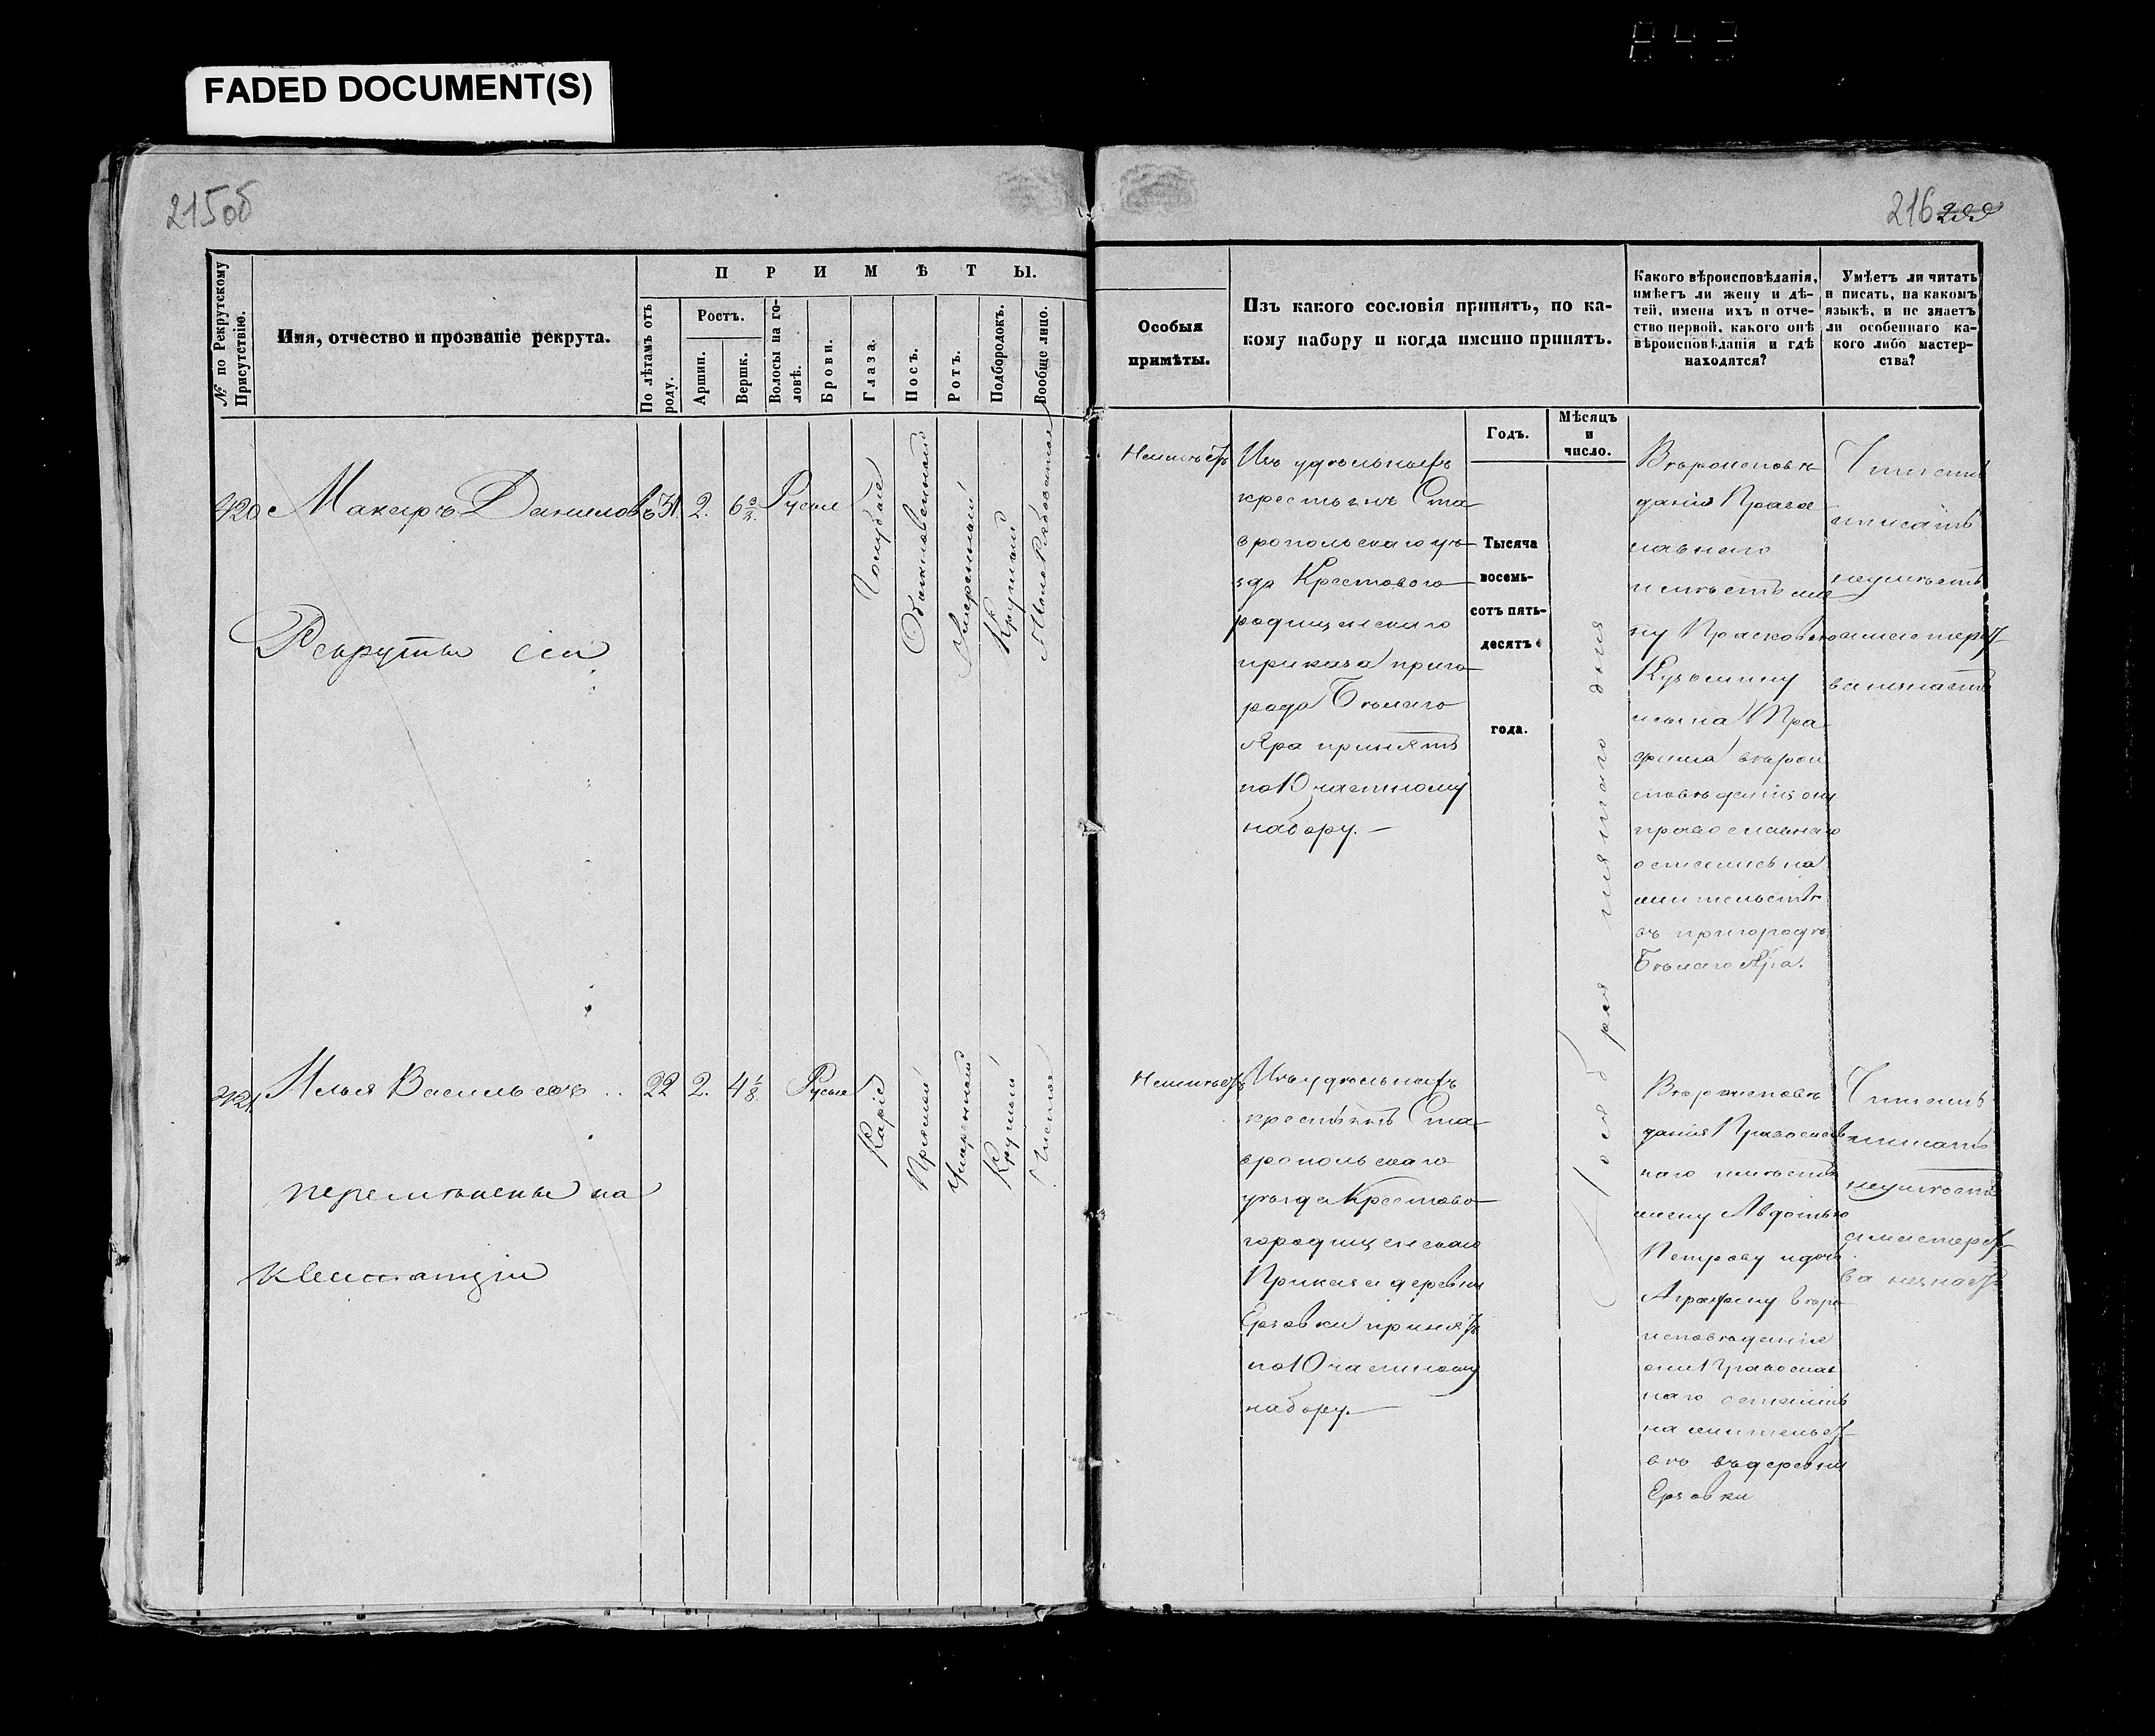 843
FADED DOCUMENT(S)
215об
216
№ по Рекрутскому Присутствію.
Имя, отчество и прозваніе рекрута.
ПРИМѢТЫ.
По лѣтамъ отъ роду.
Ростъ.
Аршин.
Вершк.
Волосы на головѣ.
Брови.
Глаза.
Носъ.
Ротъ.
Подбородокъ.
Вообще лицо.
Особыя
примѣты.
Изъ какого сословія принятъ, по ка-
кому набору и когда именно принятъ.
Годъ.
Мѣсяцъ
и
число.
Какого вѣроисповѣданія,
имѣетъ ли жену и дѣ-
тей, имена ихъ и отче-
ство первой, какого онѣ
вѣроисповѣданія и гдѣ
находятся?
Умѣетъ ли читать
и писать, на какомъ
языкѣ, и не знаетъ
ли особеннаго ка-
кого либо мастер-
ства?
420
Макаръ Даниловъ
31.
2.
6
Русые
Голубые
Обыкновенный
Умеренный
Круглый
Рекруты сіи
Неимѣетъ
Изъ удѣльныхъ
крестьянъ Ста-
вропольскаго уѣ-
зда Крестового-
родищенскаго
приказа приго-
рода Бѣлаго
Яра принятъ
по 10 частному
набору. —
Тысяча
восемь-
сотъ пять-
десятъ
года.
Ноября пятаго дня
Вѣроисповѣ
данія Право
славнаго
имѣетъ же
ну Прасковью
Кузьмину
сына Тра
фима вѣрои
сповѣданія они
православнаго
остались на
жительствѣ
въ пригородѣ
Бѣлаго Яра.
Читать
иписать
неумѣетъ
имастерст
ванезнаетъ
421.
Илья Васильевъ
22
2.
4 1/8.
Русые
Каріе
Прямой
Умеренный
Круглый
Чистое
перемѣнены на
квитанціи
Неимѣетъ
Изъ удѣльныхъ
крестьянъ Ста-
вропольскаго
уѣзда Крестово-
городищенскаго
Приказа деревни
Ерзовки принятъ
по 10 частному
набору. —
Вѣроисповѣ
данія Православ
наго имѣетъ
жену Авдотью
Петрову идочь
Аграфену вѣро-
исповѣданія
они Православ
наго остались
на жительст-
вѣ въ деревни
Ерзовки
Читать
иписать
неумѣетъ
имастерст-
ва незнаетъ